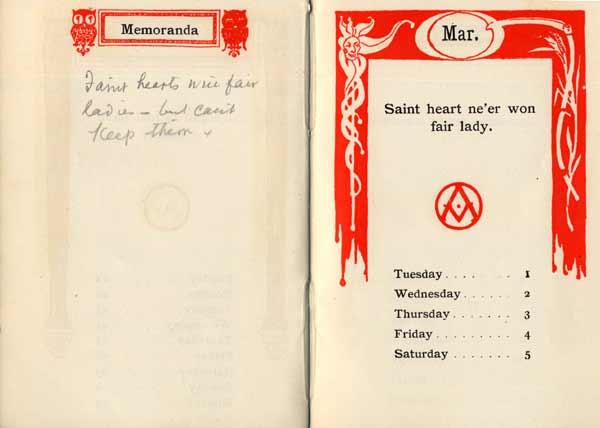 Memoranda
Faint hearts win fair
ladies – but can't
keep them
Mar.
Saint heart ne'er won
fair lady.
Tuesday . . . . . . . 1
Wednesday . . . . . . 2
Thursday . . . . . . . 3
Friday . . . . . . . . 4
Saturday . . . . . . . 5